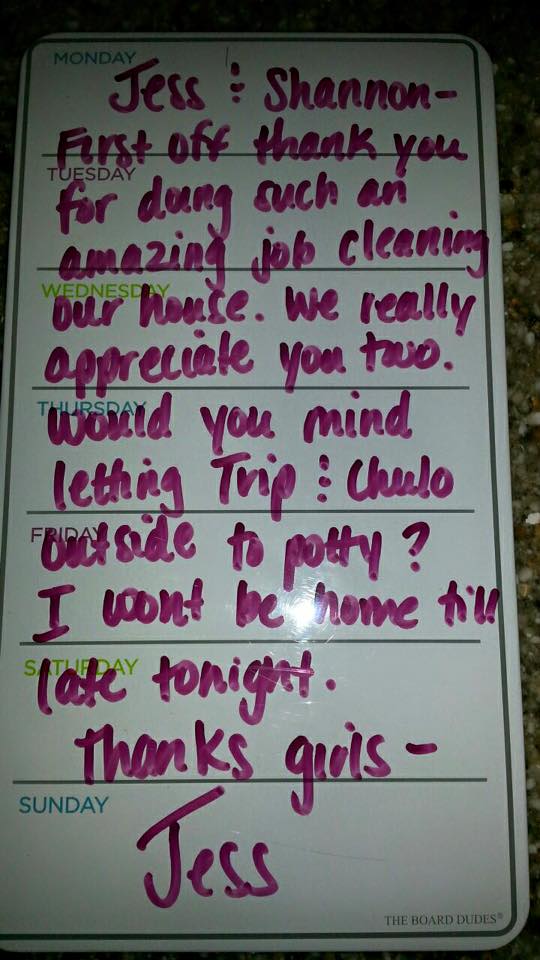 MONDAY
Jess & Shannon-
First off thank you
TUESDAY
for doing such an
amazing job cleaning
WEDNESDAY
our house. We really
appreciate you two.
THURSDAY
Would you mind
letting Trip & Chulo
FRIDAY
outside to potty?
I wont be home till
SATURDAY
late tonight.
Thanks girls-
SUNDAY
Jess
THE BOARD DUDES®